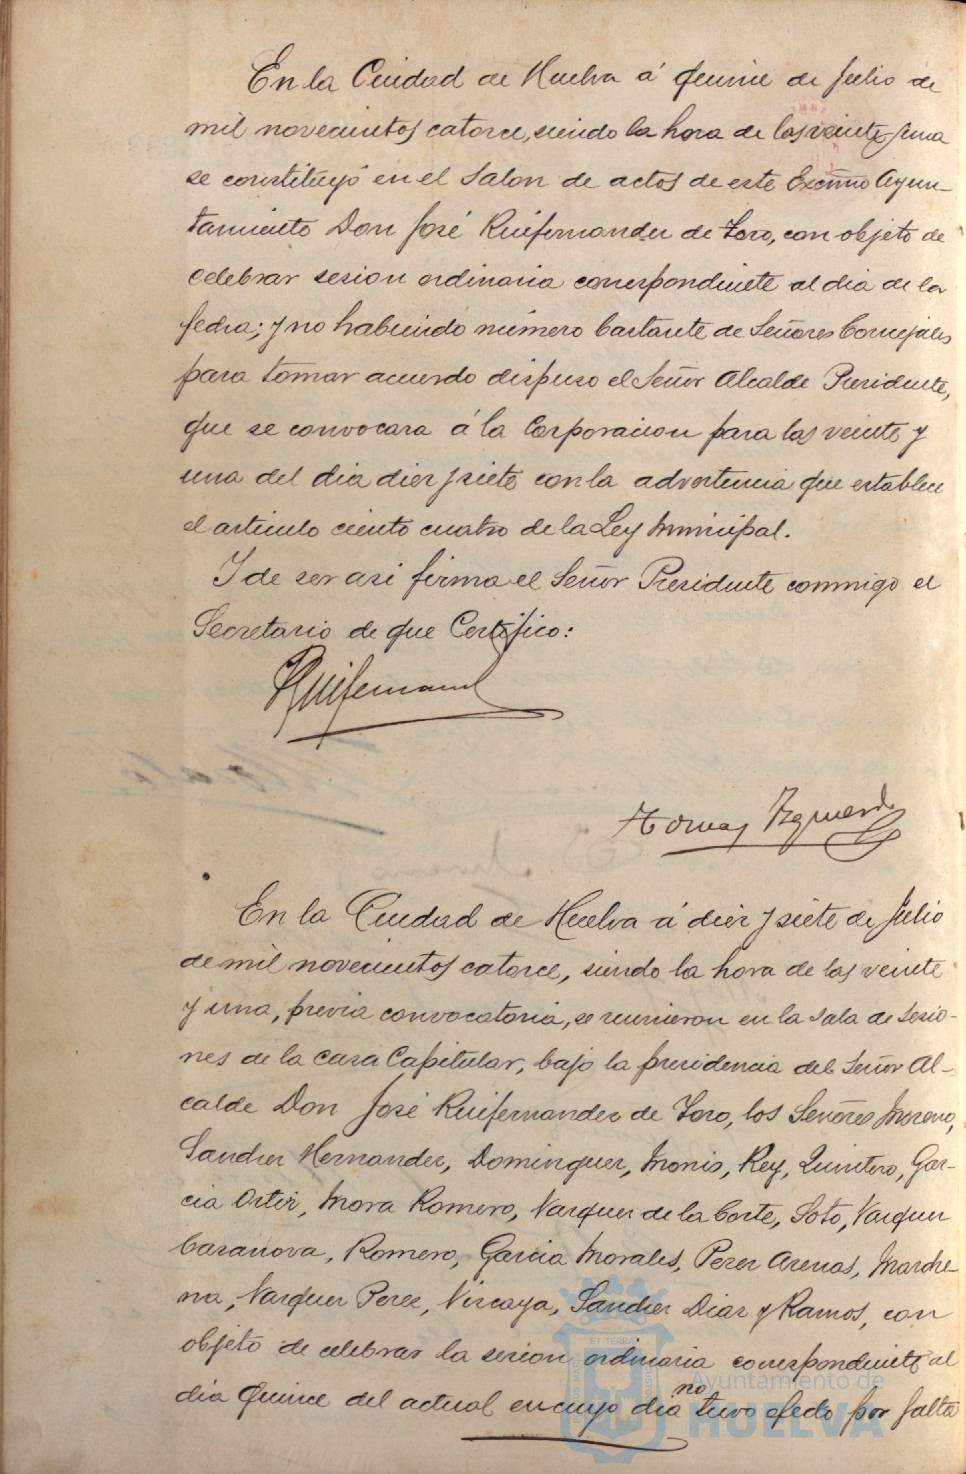 En la Ciudad de Huelva á quince de Julio de
mil novecientos catorce, siendo la hora de las veinte y una
se constituyó en el Salon de actos de este Excmo Ayun-
tamiento Don José Ruifernandez de Toro, con objeto de
celebrar sesion ordinaria correspondiente al dia de la
fecha; y no habiendo número bastante de Señores Concejales
para tomar acuerdo dispuso el Señor Alcalde Presidente,
que se convocara á la Corporacion para las veinte y
una del dia diez y siete con la advertencia que establece
el articulo ciento cuatro de la Ley Municipal.
Y de ser asi firma el Señor Presidente conmigo el
Secretario de que Certifico:
Ruifernandez
Tomas Izquierdo
En la Ciudad de Huelva á diez y siete de Julio
de mil novecientos catorce, siendo la hora de las veinte
y una, previa convocatoria, se reunieron en la Sala de Sesio-
nes de la casa Capitular, bajo la presidencia del Señor Al-
calde Don José Ruifernandez de Toro, los Señores Moreno,
Sanchez Hernandez, Dominguez, Monis, Rey, Quintero, Gar-
cia Ortiz, Mora Romero, Vazquez de la Corte, Soto, Vazquez
Casanova, Romero, Garcia Morales, Perez Arenas, Marche-
na, Vazquez Perez, Vizcaya, Sanchez Diaz y Ramos, con
objeto de celebrar la sesion ordinaria correspondiente al
dia quince del actual en cuyo dia no tuvo efecto por falta
Ayuntamiento de
HUELVA